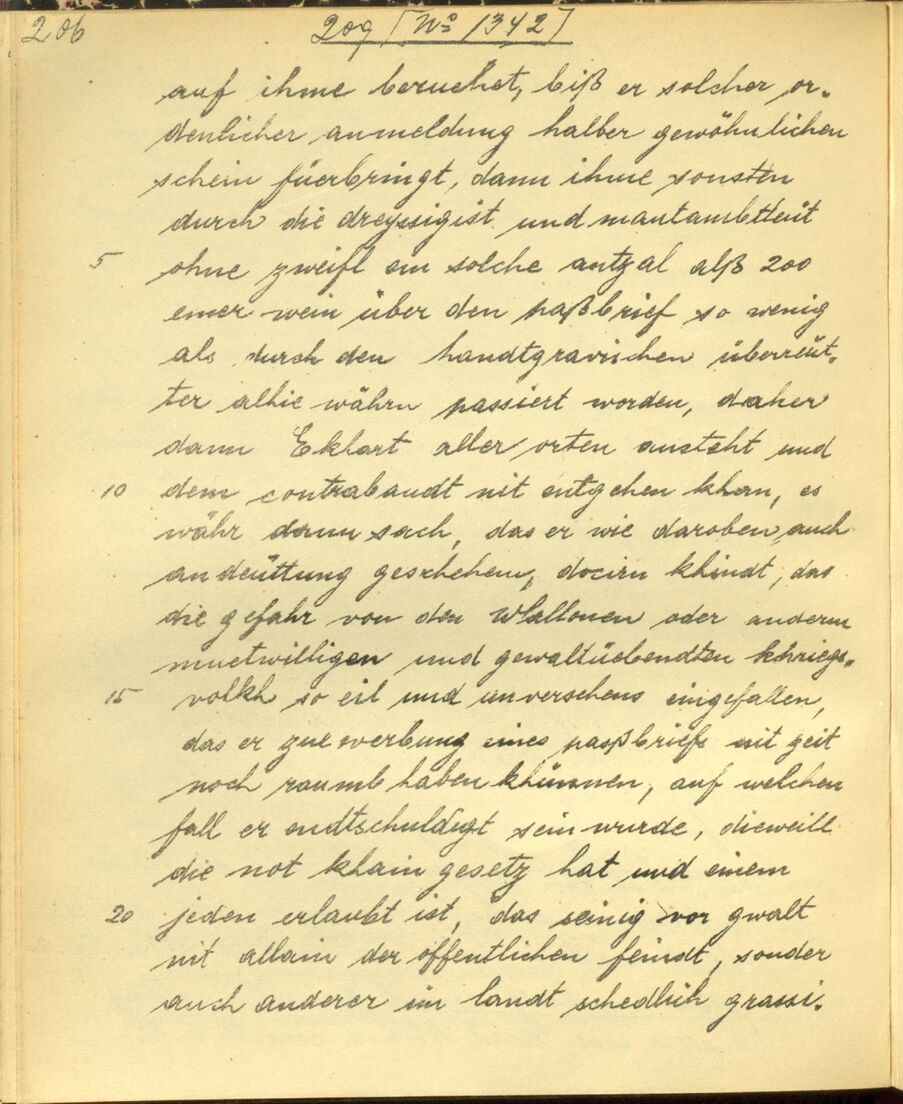 206
209 [No 1342]
auf ihme beruehet, biß er solcher or-
denlicher anmeldung halber gewöhnlichen
schein füerbringt, dann ihme sonsten
durch die dreyssigist und mautambtleüt
5 ohne zweifl ein solche antzal alß 200
emer wein über den paßbrief so wenig
als durch den handtgravischen überreüt-
ter alhie währn passiert worden, daher
dann Ekhart aller orten ansteht und
10 dem contrabandt nit entgehen khan, es
währ dann sach, das er wie daroben auch
andeüttung geschehen, docirn khindt, das
die gefahr von den Wallonen oder anderm
muetwilligen und gewaltüebendten khriegs-
15 volkh so eil und unversehens eingefallen,
das er zue werbung eines paßbriefs nit zeit
noch raumb haben khünnen, auf welchen
fall er endtschuldigt sein wurde, dieweill
die not khain gesetz hat und einem
20 jeden erlaubt ist, das seinig vor gwalt
nit allain der öffentlichen feindt, sonder
auch anderer im landt schedlich grassi-